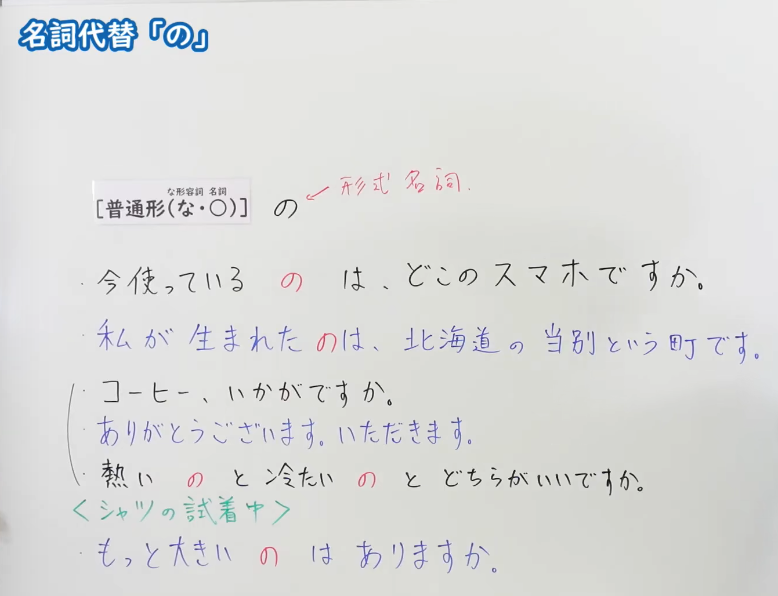 名詞代替「の」
な形容詞 名詞
[普通形(な・〇)] の ← 形式名詞.
・今使っている の は、どこのスマホですか。
・私が生まれたのは、北海道の当別という町です。
・コーヒー、いかがですか。
・ありがとうございます。いただきます。
・熱い の と 冷たい の と どちらがいいですか。
＜シャツの試着中＞
・もっと大きい の は ありますか。